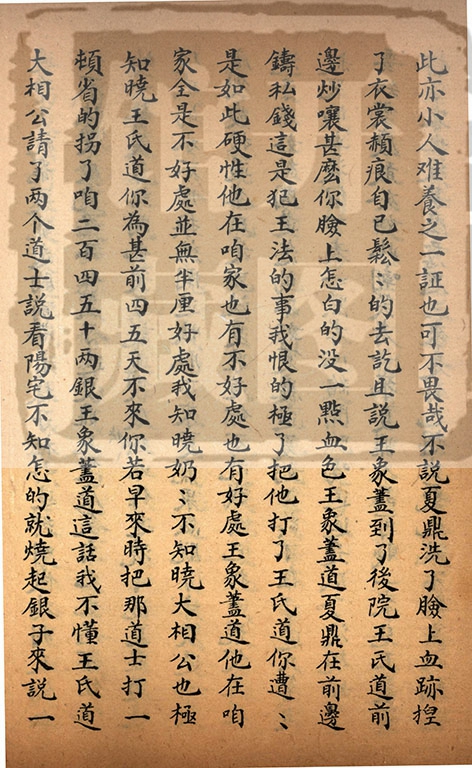 此亦小人难養之一証也可不畏哉不說夏鼎洗了臉上血跡揑
了衣裳頼痕自已鬆〻的去訖且說王象藎到了後院王氏道前
邊炒嚷甚麽你臉上怎白的没一點血色王象藎道夏鼎在前邊
鑄私錢這是犯王法的事我恨的極了把他打了王氏道你遭〻
是如此硬性他在咱家也有不好處也有好處王象藎道他在咱
家全是不好處並無半厘好處我知曉奶〻不知曉大相公也極
知曉王氏道你為甚前四五天不來你若早來時把那道士打一
頓省的拐了咱二百四五十两銀王象藎道這話我不懂王氏道
大相公請了两个道士説看陽宅不知怎的就燒起銀子來説一